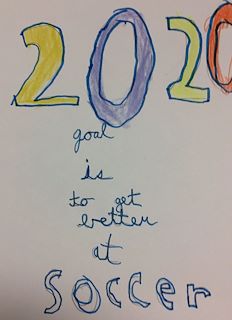 2020
goal
is
to get
better
at
soccer